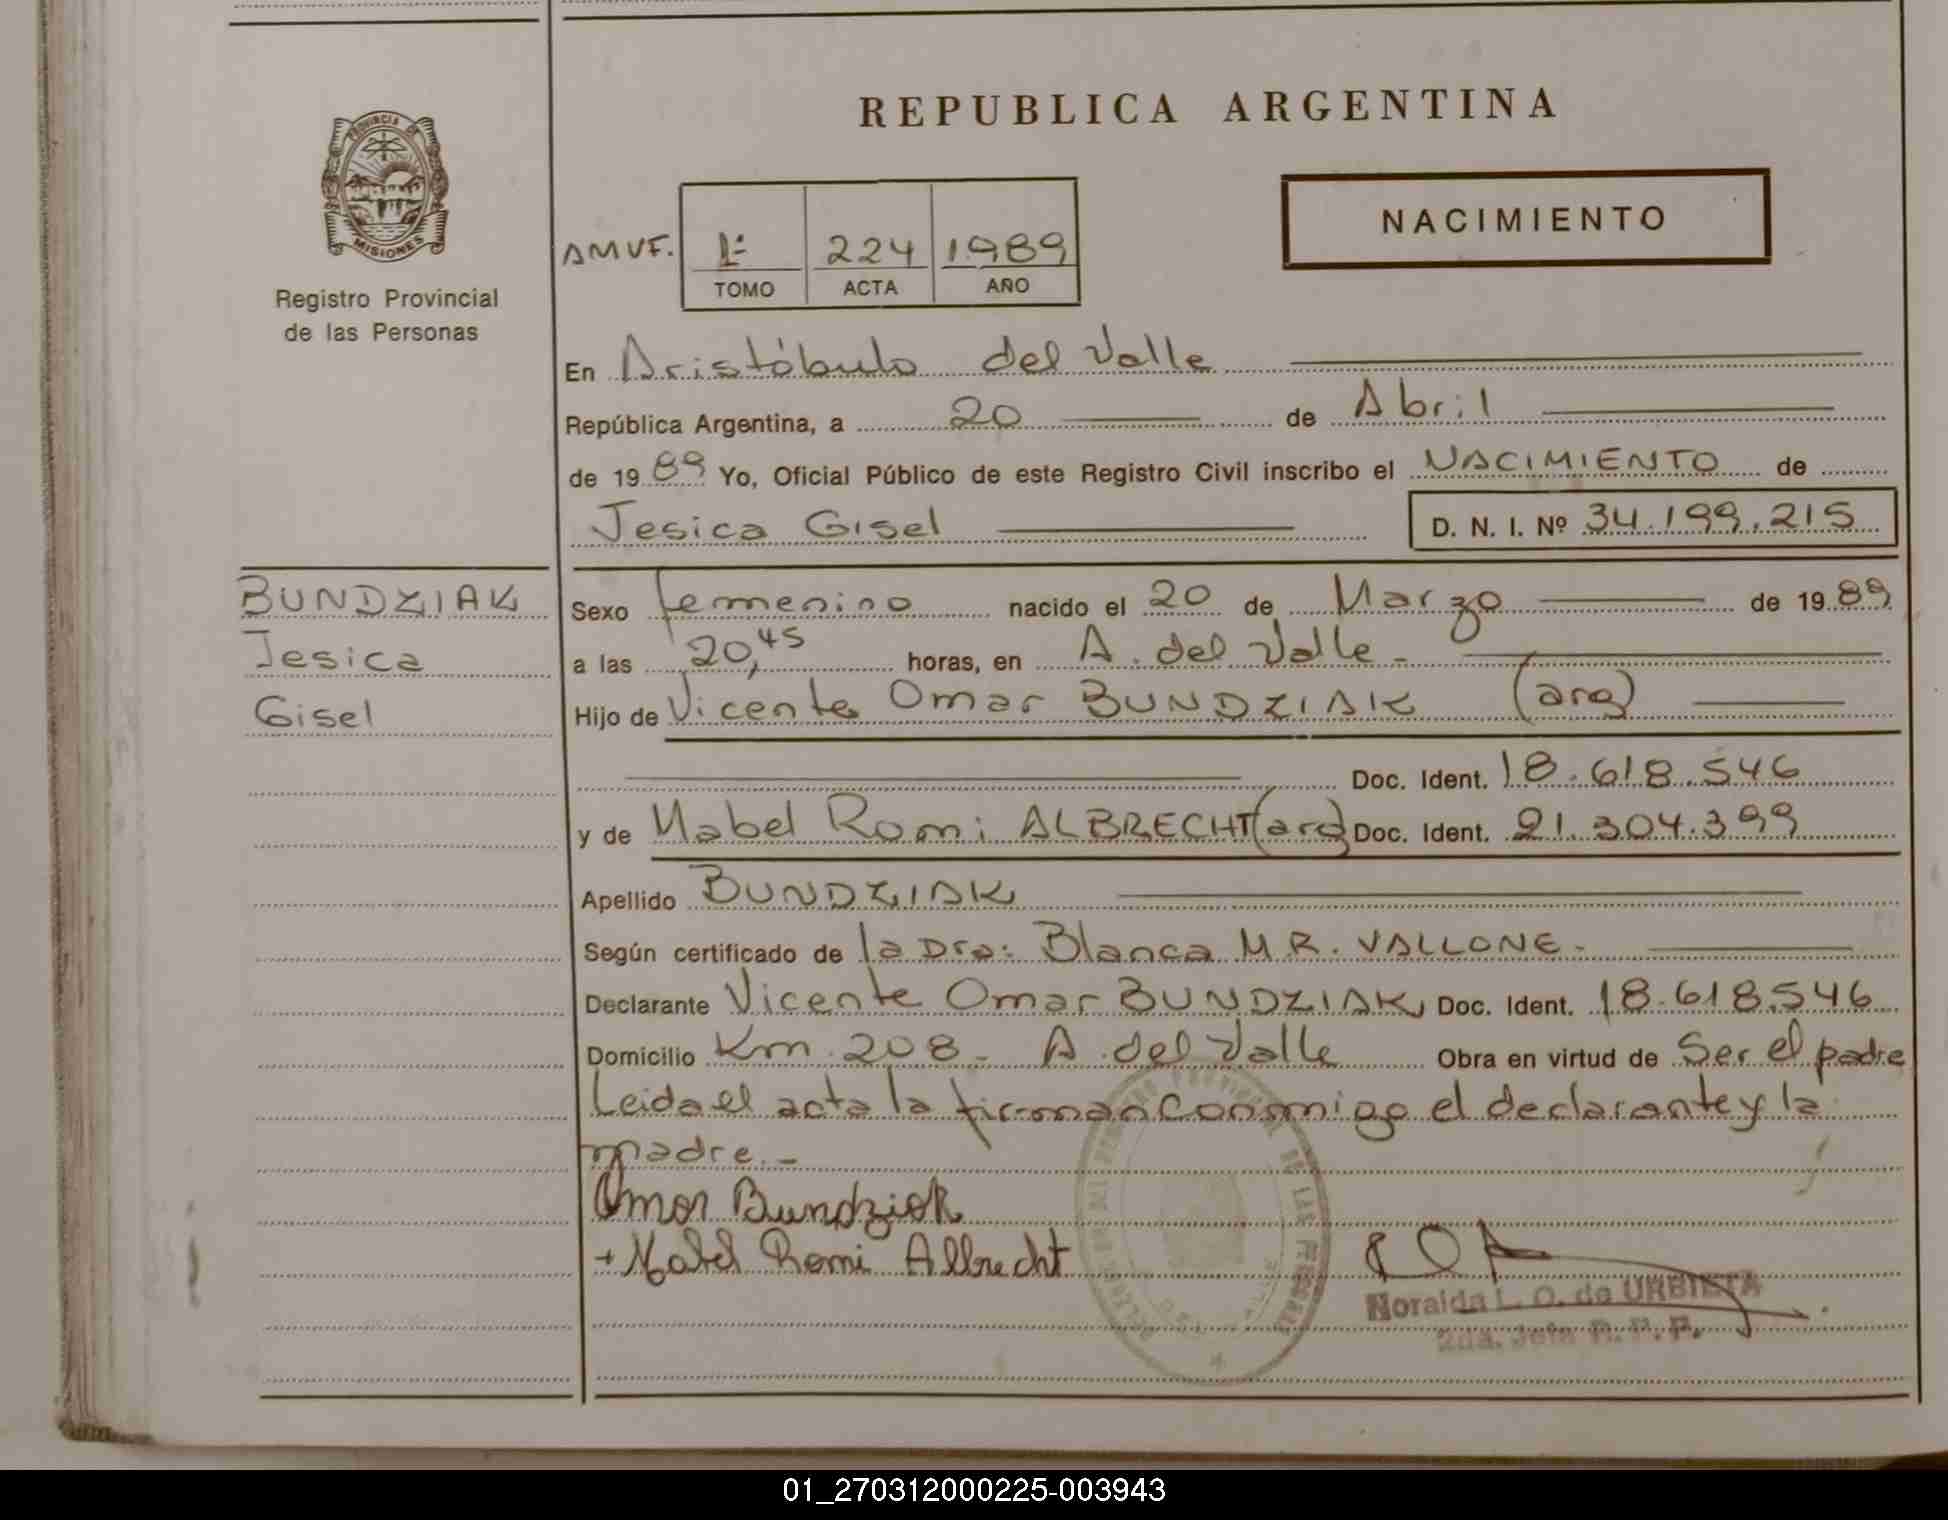 PROVINCIA DE
MISIONES
Registro Provincial
de las Personas
REPUBLICA ARGENTINA
NACIMIENTO
AMVF. 1º 224 1989
TOMO ACTA AÑO
En Aristóbulo del Valle
República Argentina, a 20 de Abril
de 1989 Yo, Oficial Público de este Registro Civil inscribo el NACIMIENTO de
Jesica Gisel D. N. I. Nº 34.199.215
BUNDZIAK
Jesica
Gisel
Sexo femenino nacido el 20 de Marzo de 1989
a las 20,45 horas, en A. del Valle -
Hijo de Vicente Omar BUNDZIAK (arg)
Doc. Ident. 18.618.546
y de Mabel Romi ALBRECHT (arg) Doc. Ident. 21.304.399
Apellido BUNDZIAK
Según certificado de la Dra: Blanca M.R. VALLONE -
Declarante Vicente Omar BUNDZIAK Doc. Ident. 18.618.546
Domicilio Km 208 - A. del Valle Obra en virtud de Ser el padre
Leida el acta la firman conmigo el declarante y la
madre. -
Omar Bundziak
+ Mabel Romi Albrecht
Noralda L. O. de URBIETA
2da. Jefa R. P. P.
01_270312000225-003943